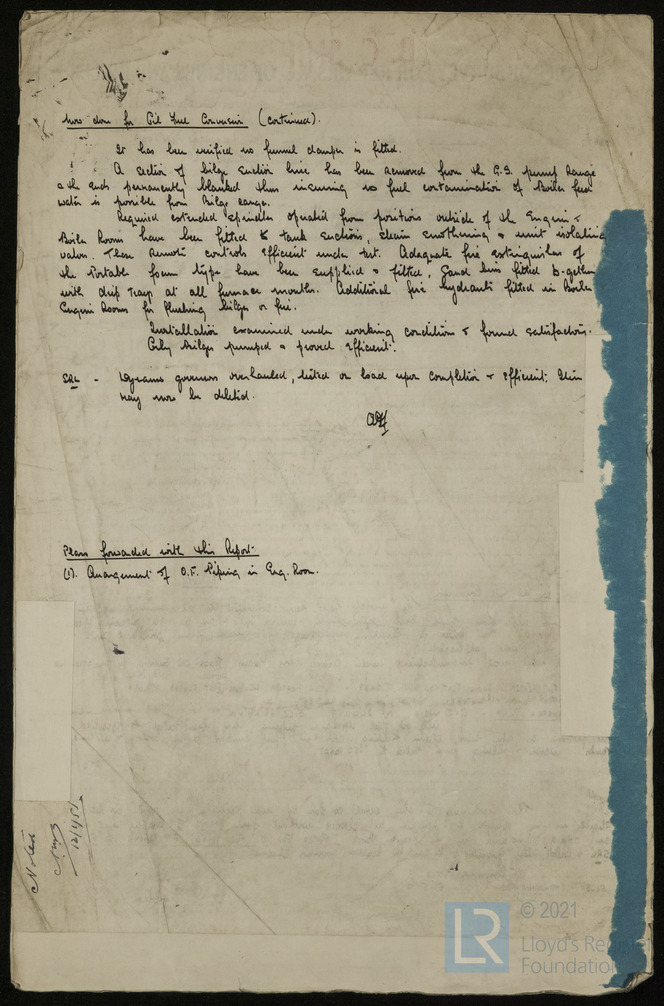 now done for Oil Fuel Conversion (continued).
It has been verified no funnel damper is fitted.
A section of bilge suction line has been removed from the G.S. pump range
& the ends permanently blanked thus insuring no fuel contamination of Boiler feed
water is possible from Bilge range.
Required extended spindles operated from positions outside of the Engine &
Boiler Rooms have been fitted to tank suctions, steam smothering & unit isolating
valves. These remote controls efficient under test. Adequate fire extinguishers of
the Portable foam type have been supplied & fitted, Sand bins fitted together
with drip trays at all furnace mouths. Additional fire hydrants fitted in Boiler
Engine Rooms for flushing bilges or fire.
Installation examined under working conditions & found satisfactory.
Oily Bilges pumped & proved efficient.
- Dynamo governors overhauled, tested on load upon completion & efficient. Item
may now be deleted.
Plans forwarded with this Report.
(1). Arrangement of O.F. Piping in Eng. Room.
Noted
12/4/51
LR
© 2021
Lloyd's Register
Foundation